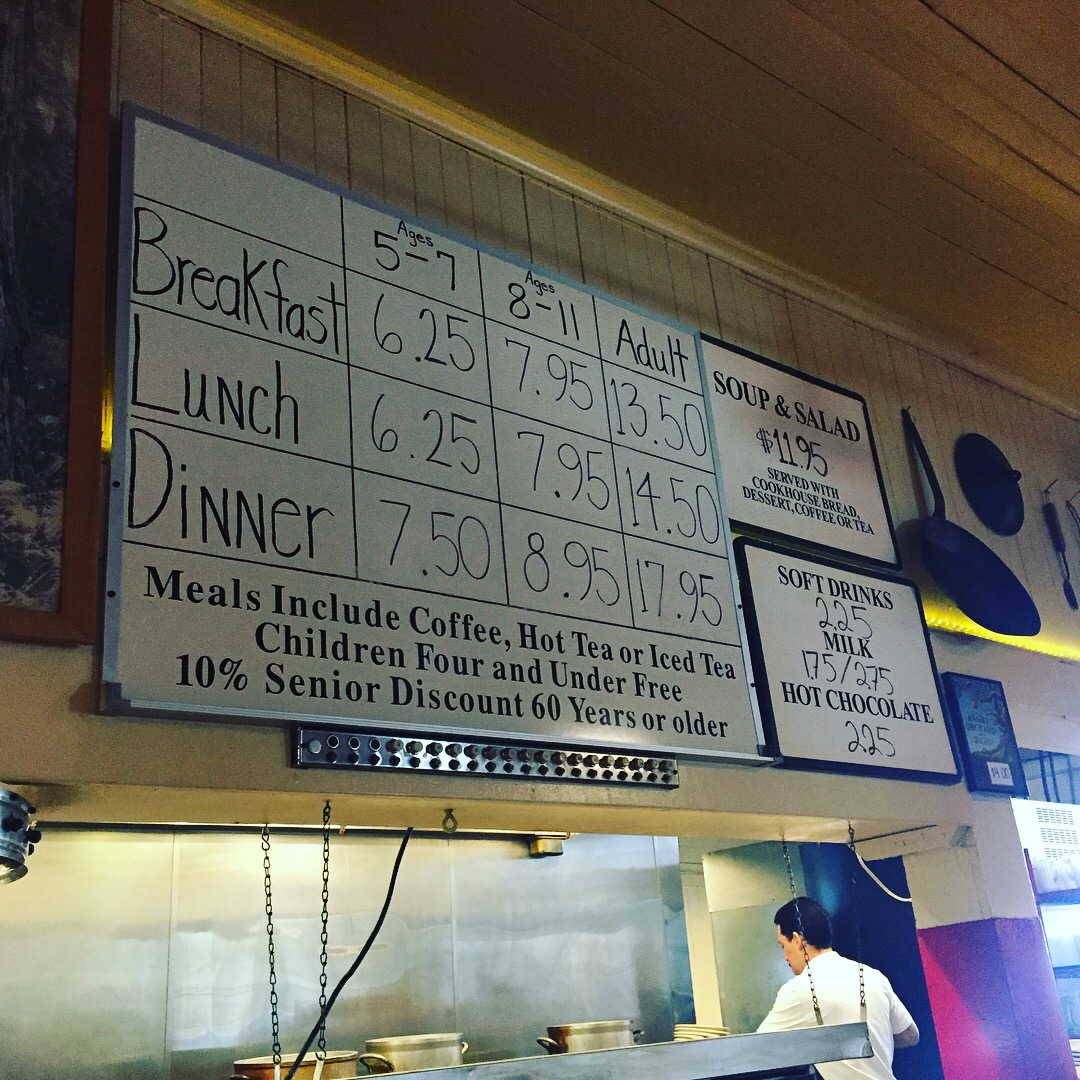 Ages Ages
5-7 8-11 Adult
Breakfast 6.25 7.95 13.50
Lunch 6.25 7.95 14.50
Dinner 7.50 8.95 17.95
Meals Include Coffee, Hot Tea or Iced Tea
Children Four and Under Free
10% Senior Discount 60 Years or older
SOUP & SALAD
$11.95
SERVED WITH
COOKHOUSE BREAD,
DESSERT, COFFEE OR TEA
SOFT DRINKS
2.25
MILK
1.75/2.75
HOT CHOCOLATE
2.25
ANGRY
ORCHARD
$4.00